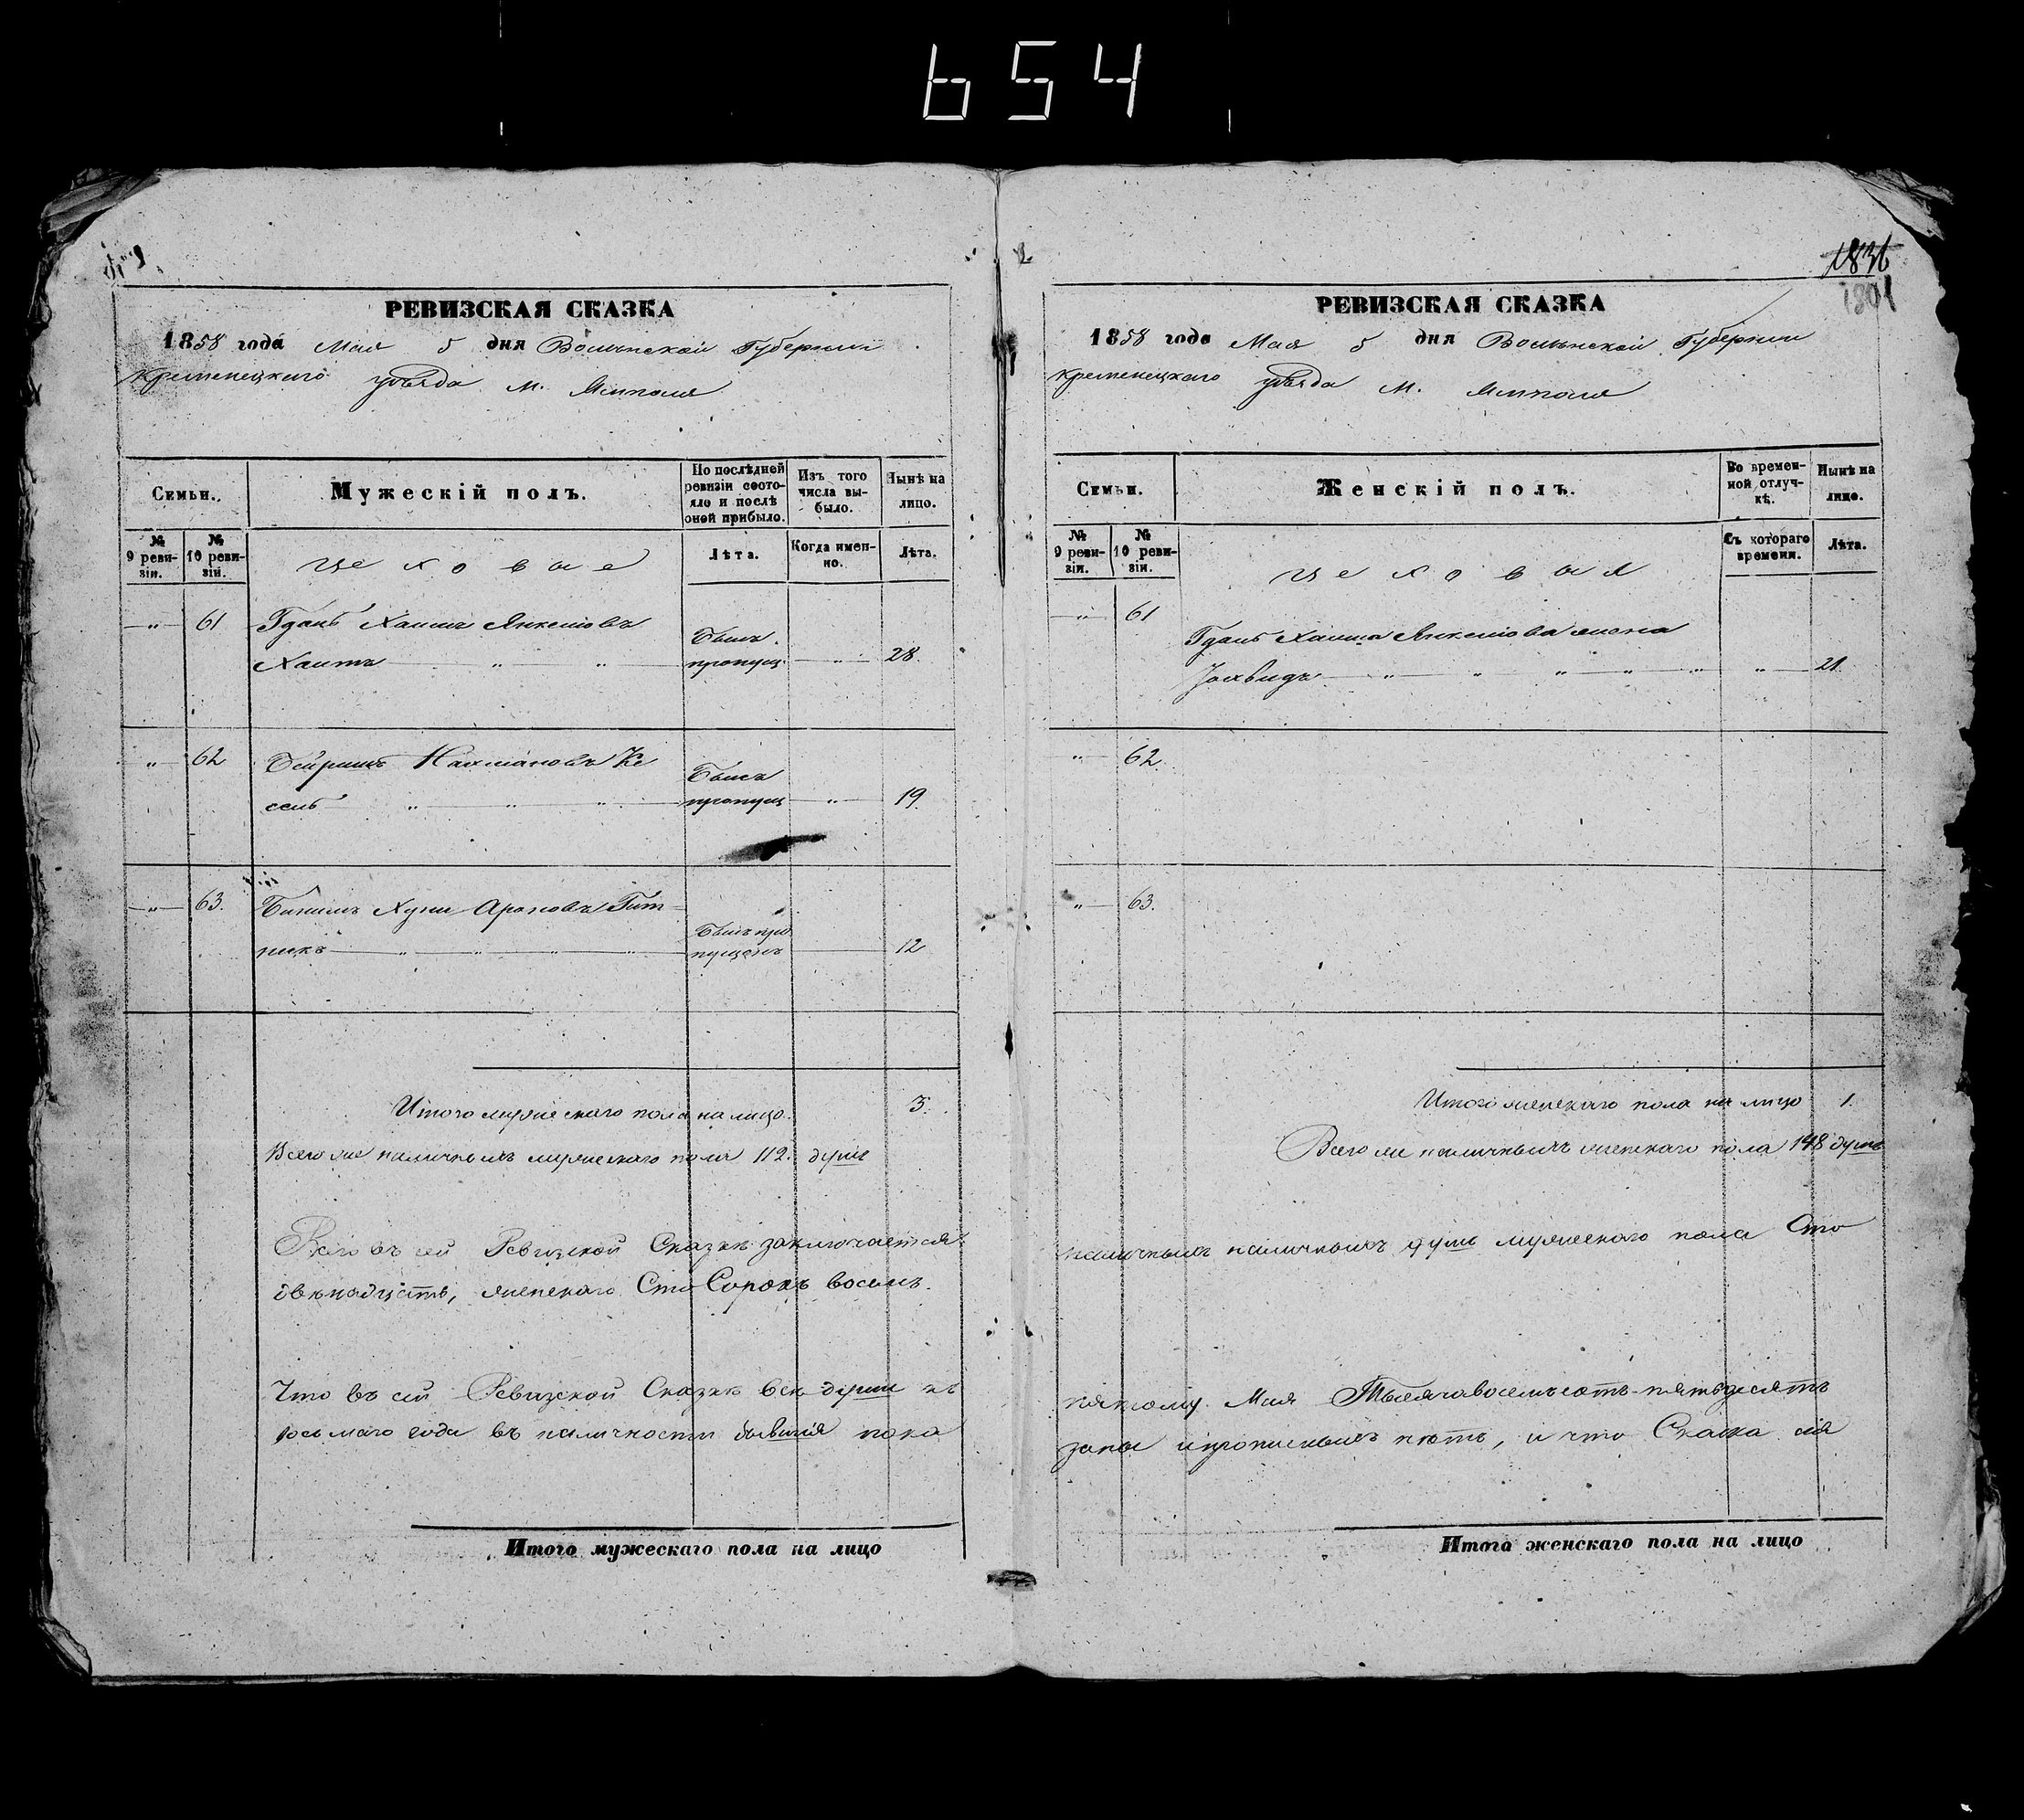 654
РЕВИЗСКАЯ СКАЗКА
1858 года Мая 5 дня Волынской Губернии
Кременецкого уѣзда м. Ямполя
Семьи.
Мужескій полъ.
По послѣдней ревизіи состояло и послѣ оной прибыло.
Изъ того числа выбыло.
Нынѣ на лицо.
№ 9 ревизіи.
№ 10 ревизіи.
цеховые
Лѣта.
Когда именно.
Лѣта.
" 61 Хаимъ Янкелювъ
Былъ
пропущ " 28.
" 62 Нахмановъ Ке
Былъ
сель " " " пропущ " 19.
" 63. Ароновъ Гит-
Былъ про
никъ " " " " пущенъ 12
Итого мужескаго пола на лицо. 3.
Всего же наличныхъ мужескаго пола 112. душъ
Всего въ сей Ревизской Сказкѣ заключается
двѣнадцать, женскаго Сто Сорокъ восемь.
Что въ сей Ревизской Сказкѣ всѣ души къ
восьмаго года въ наличности бывшія пока
Итого мужескаго пола на лицо
1836
1801
РЕВИЗСКАЯ СКАЗКА
1858 года Мая 5 дня Волынской Губернии
Кременецкаго уѣзда м. Ямполя
Семьи.
Женскій полъ.
Во временной отлучкѣ.
Нынѣ на лицо.
№ 9 ревизіи.
№ 10 ревизіи.
цеховыя
Съ котораго времени.
Лѣта.
" 61
Хаима Янкелюва жена
" " " " " " 21.
" 62.
" 63.
Итого женскаго пола на лицо 1.
Всего же наличныхъ женскаго пола 148 душъ
наличныхъ наличныхъ душъ мужескаго пола Сто
пятому Мая Тысяча восемьсотъ пятьдесятъ
заны и прописныхъ нѣтъ, и что Сказка сія
Итого женскаго пола на лицо